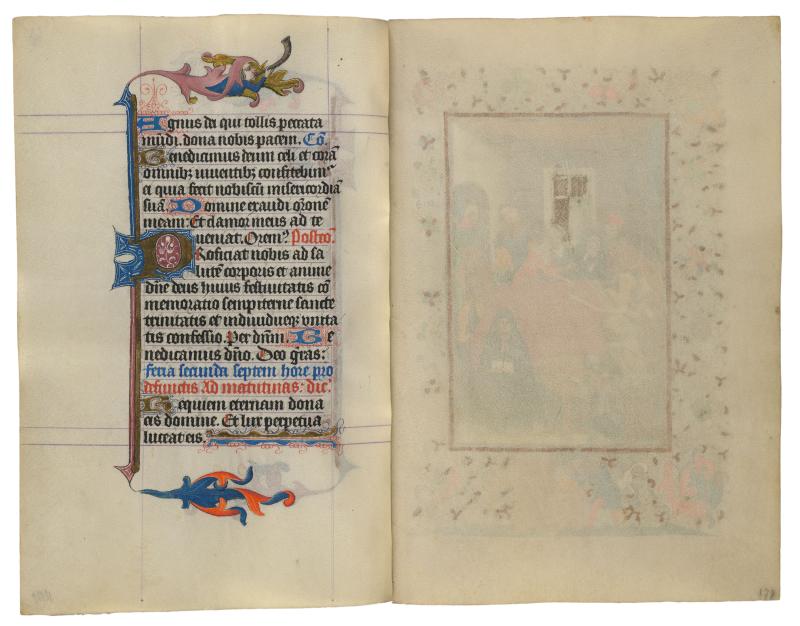 Agnus dei qui tollis peccata
mūdi. dona nobis pacem. Cō.
Benedicimus deum celi et corā
omnibꝫ viuentibꝫ confitebimꝰ
ei quia fecit nobiscū misericordiā
suā. Domine exaudi orōnē
meam: Et clamor meus ad te
veniat. Oremꝰ. Postcō.
Proficiat nobis ad sa
lutē corporis et anime
dn̄e deus huius festiuitatis cō
memoratio sempiterne sancte
trinitatis et indiuidueqꝫ vnita
tis confessio. Per dn̄m. Be
nedicamus dn̄o. Deo grās:
feria secunda septem hore pro
defunctis Ad matutinas: dic.
Requiem eternam dona
eis domine. Et lux perpetua
luceat eis.
178